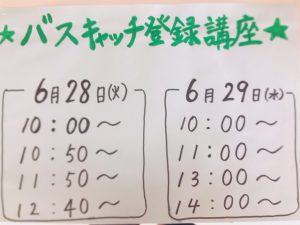 ★バスキャッチ登録講座★
6月28日(火)
10：00～
10：50～
11：50～
12：40～
6月29日(水)
10：00～
11：00～
13：00～
14：00～